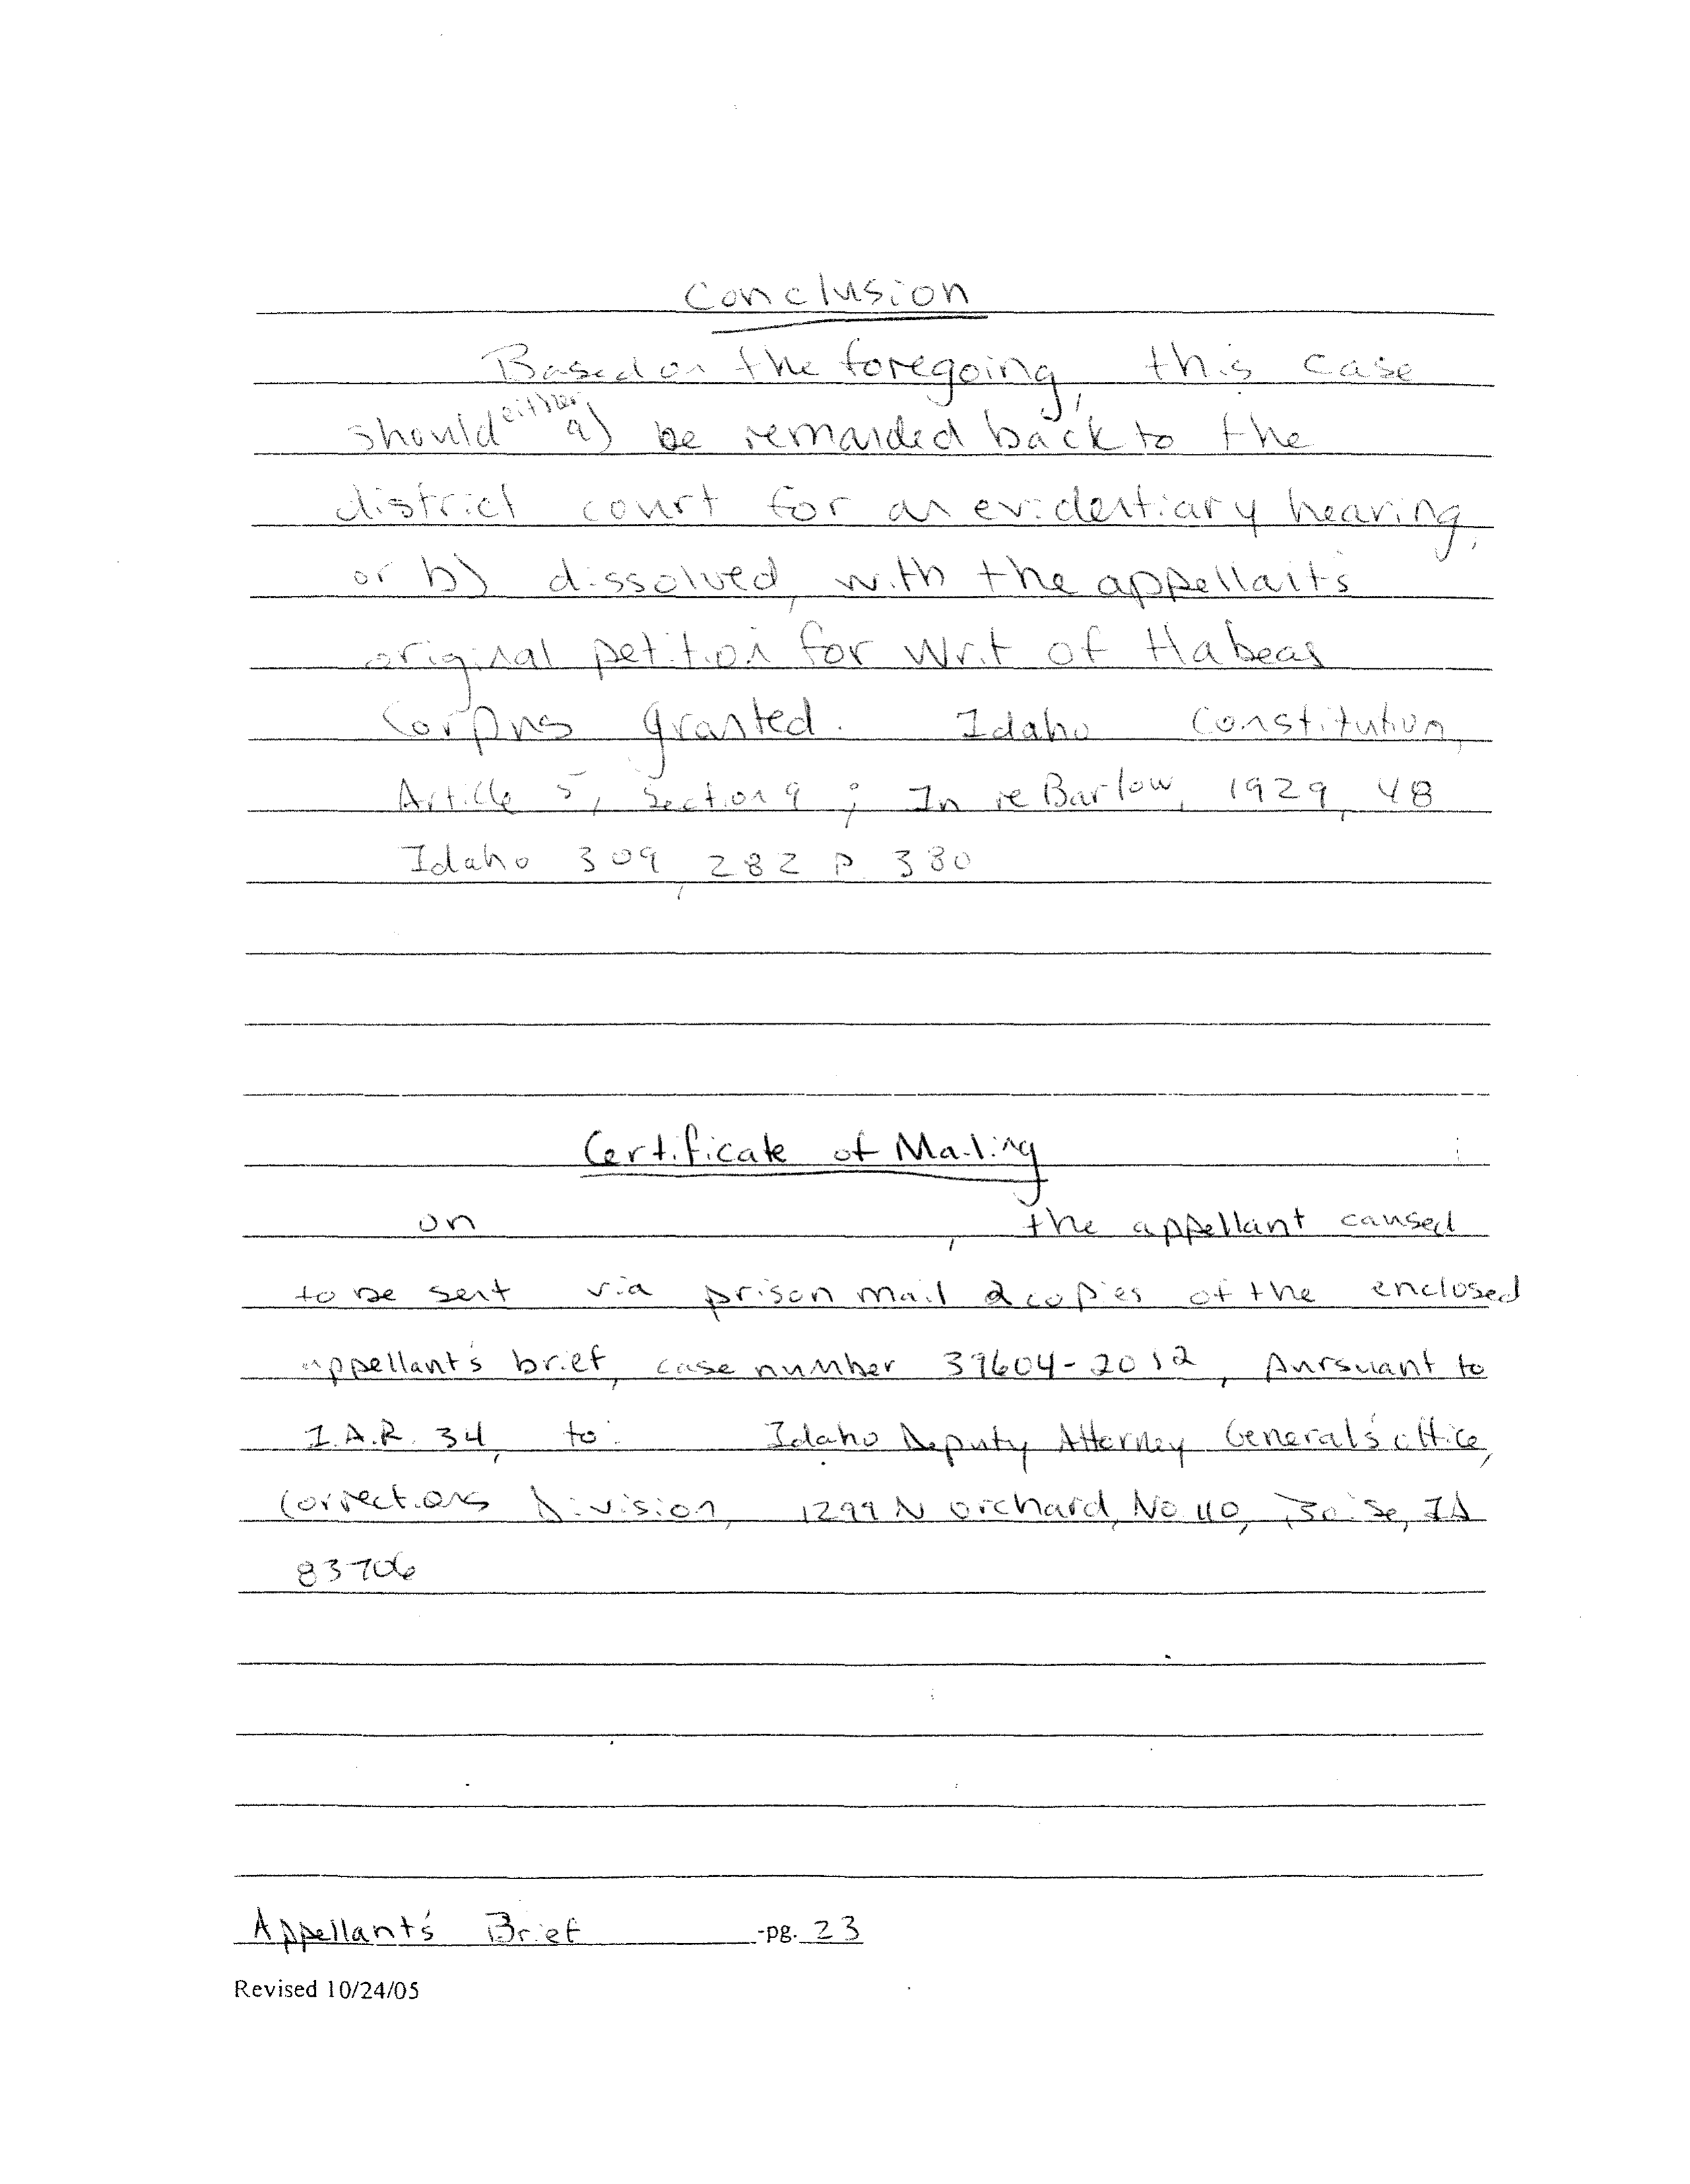 Conclusion
Based on the foregoing, this case
should either a) be remanded back to the
district court for an evidentiary hearing,
or b) dissolved, with the appellant's
original petition for Writ of Habeas
Corpus granted. Idaho Constitution,
Article 5, Section 9; In re Barlow, 1929, 48
Idaho 309, 282 P. 380
Certificate of Mailing
on , the appellant caused
to be sent via prison mail 2 copies of the enclosed
appellant's brief, case number 39604-2012, pursuant to
I.A.R. 34, to: Idaho Deputy Attorney General's office,
Corrections Division, 1299 N Orchard, No 110, Boise, ID
83706
Appellant's Brief -pg. 23
Revised 10/24/05